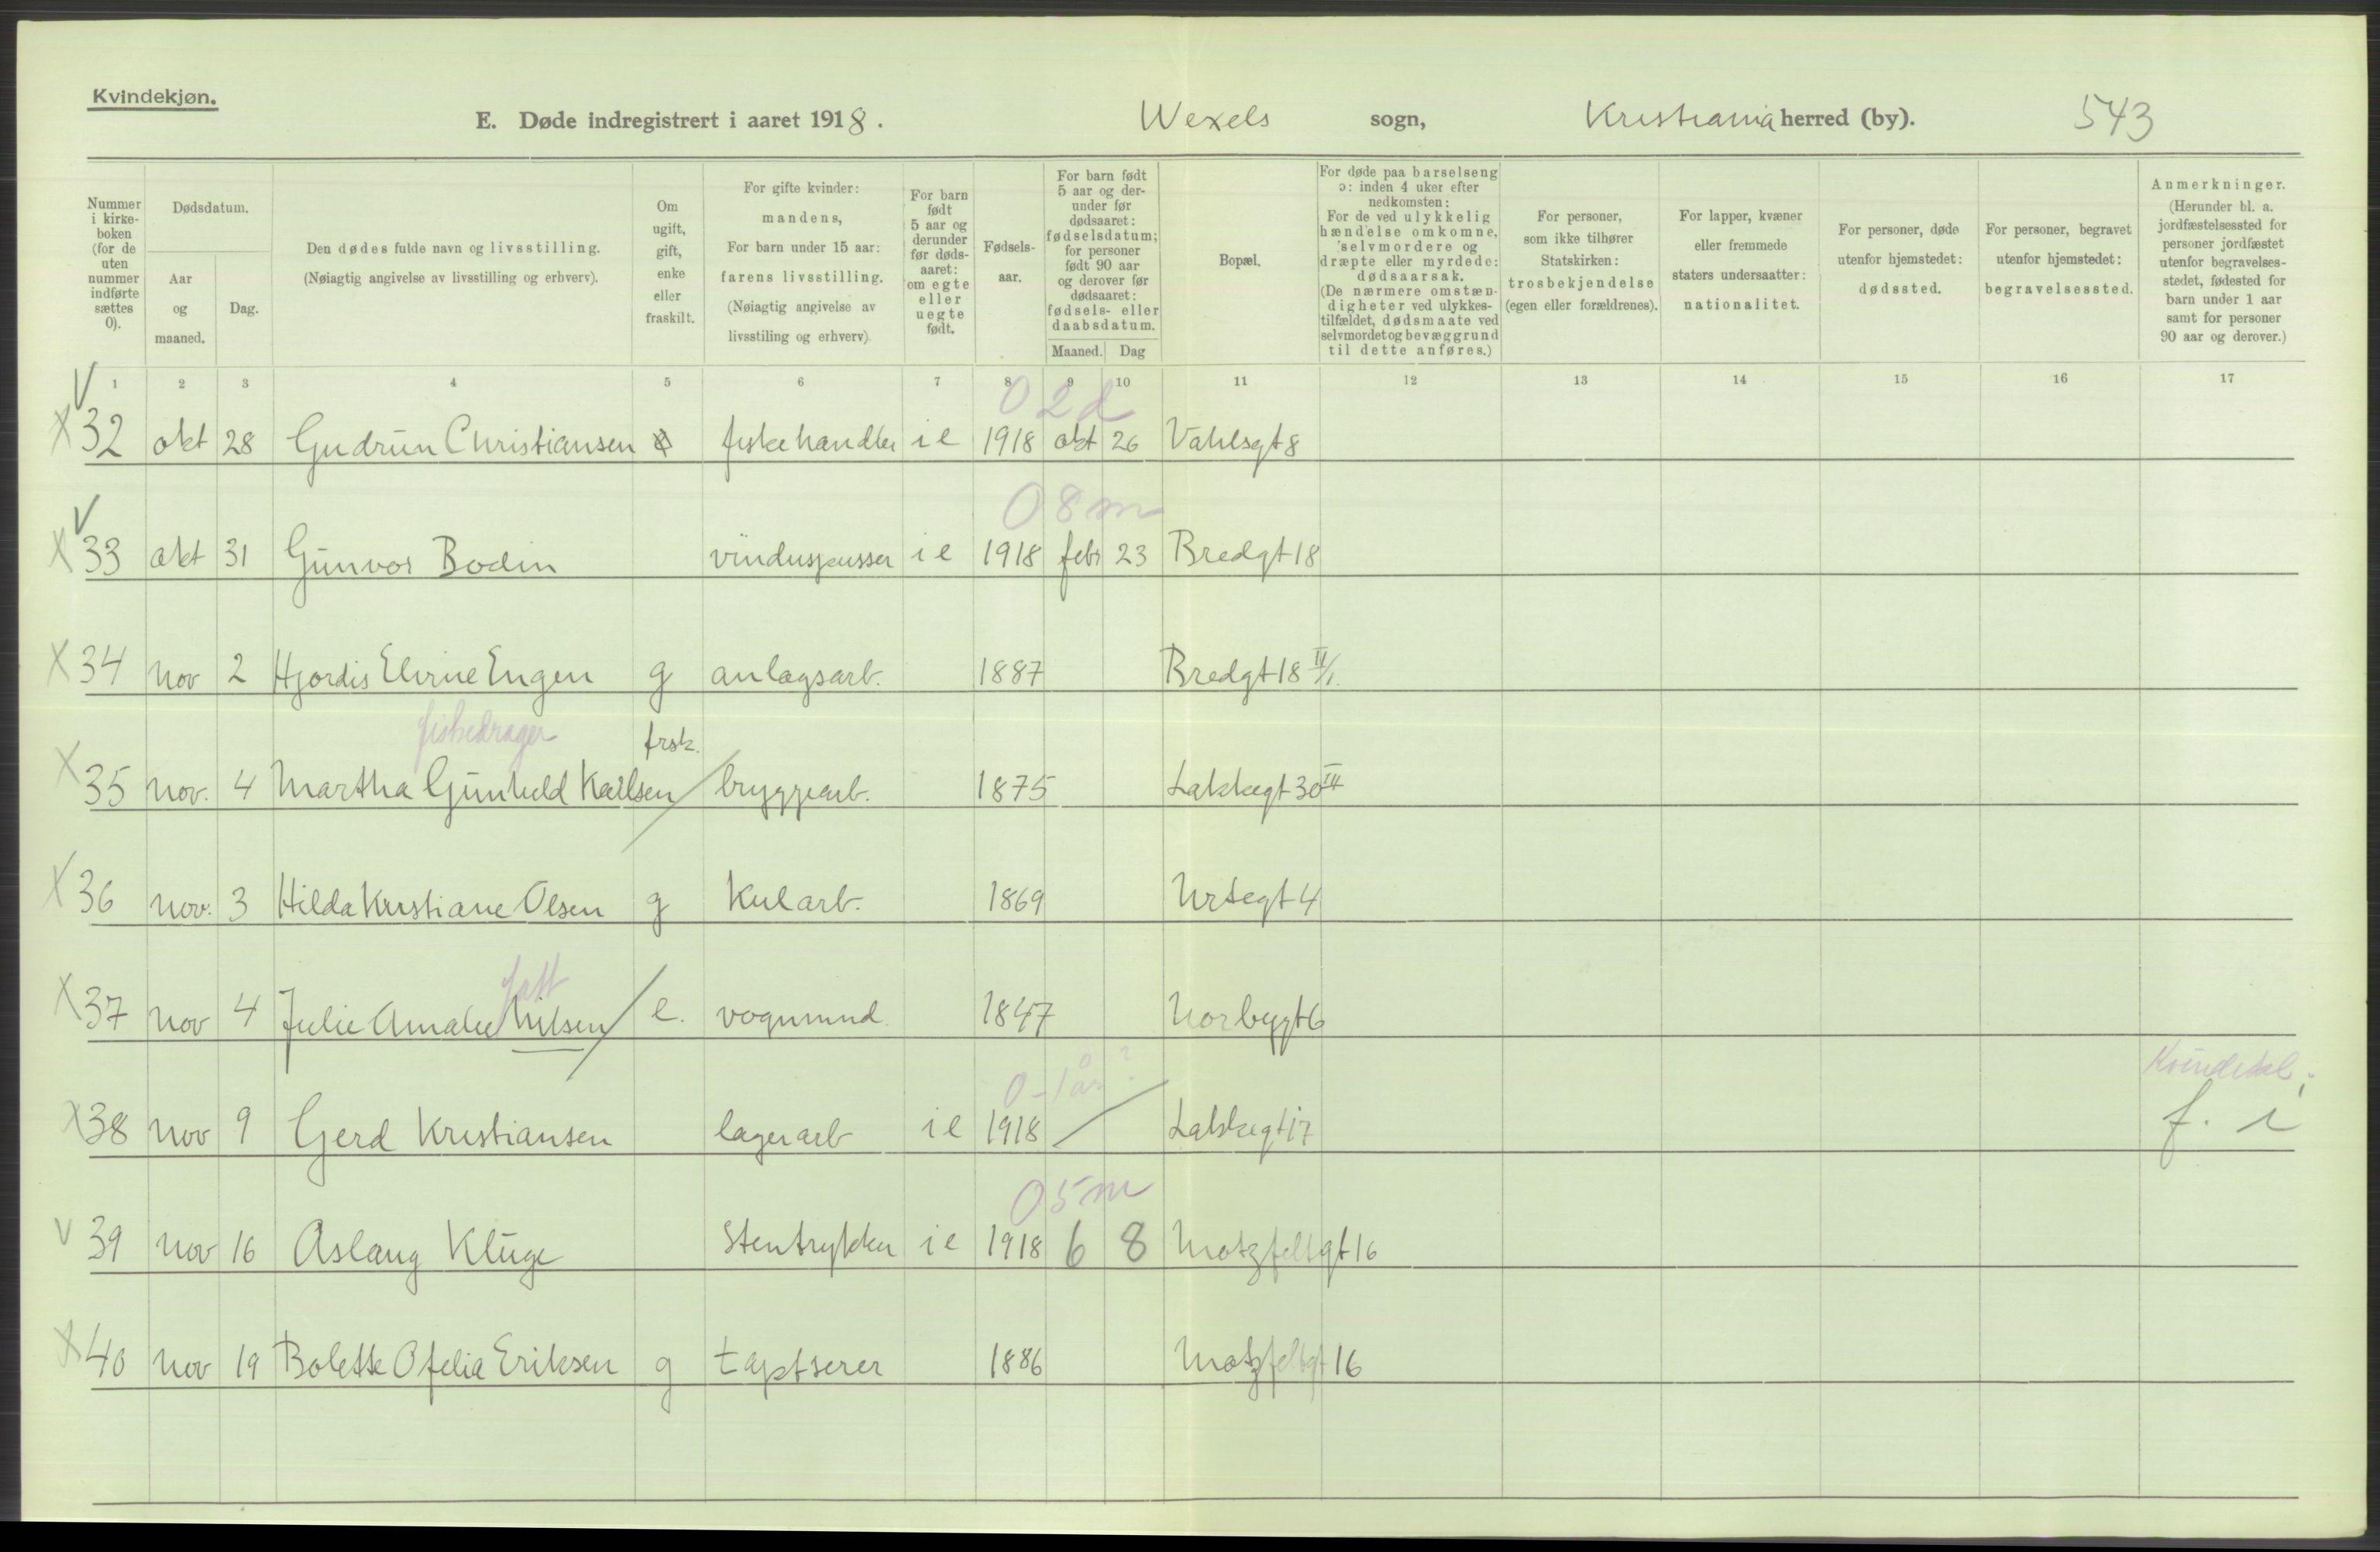 Kvindekjøn.
E. Døde indregistrert i aaret 1918. Wexels sogn, Kristiania herred (by). 543
Nummer i kirkeboken (for de uten nummer indførte sættes 0).
Dødsdatum.
Aar og maaned.
Dag.
Den dødes fulde navn og livsstilling.
(Nøiagtig angivelse av livsstilling og erhverv).
Om ugift, gift, enke eller fraskilt.
For gifte kvinder: mandens,
For barn under 15 aar: farens livsstilling.
(Nøiagtig angivelse av livsstiling og erhverv).
For barn født 5 aar og derunder før dødsaaret: om egte eller uegte født.
Fødselsaar.
For barn født 5 aar og derunder før dødsaaret: fødselsdatum; for personer født 90 aar og derover før dødsaaret: fødsels- eller daabsdatum.
Maaned. Dag
Bopæl.
For døde paa barselseng ɔ: inden 4 uker efter nedkomsten:
For de ved ulykkelig hændelse omkomne, selvmordere og dræpte eller myrdede: dødsaarsak.
(De nærmere omstændigheter ved ulykkestilfældet, dødsmaate ved selvmordet og bevæggrund til dette anføres.)
For personer, som ikke tilhører Statskirken: trosbekjendelse (egen eller forældrenes).
For lapper, kvæner eller fremmede staters undersaatter: nationalitet.
For personer, døde utenfor hjemstedet: dødssted.
For personer, begravet utenfor hjemstedet: begravelsessted.
Anmerkninger.
(Herunder bl. a. jordfæstelsessted for personer jordfæstet utenfor begravelsesstedet, fødested for barn under 1 aar samt for personer 90 aar og derover.)
1 2 3 4 5 6 7 8 9 10 11 12 13 14 15 16 17
0 2 d
X 32 okt 28 Gudrun Christiansen fiskehandler i e 1918 okt 26 Vahlsgt 8
0 8 m
X 33 okt 31 Gunvor Bodin vinduspusser i e 1918 febr 23 Bredgt 18
X 34 Nov 2 Hjordis Elvine Engen g anlagsarb. 1887 Bredgt 18 II/1.
fiskedrager frsk.
X 35 Nov. 4 Martha Gunhild Karlsen bryggearb. 1875 Lakkegt 30 III
X 36 Nov. 3 Hilda Kristiane Olsen g Kularb. 1869 Urtegt 4
fatt
X 37 Nov 4 Julie Amalie Nilsen e. vognmand 1847 Norbygt 6
0-1 år ? Kvindekl.
X 38 Nov 9 Gerd Kristiansen lagerarb i e 1918 Lakkegt 17 f. i
0 5 m
V 39 Nov 16 Aslaug Kluge Stentrykker i e 1918 6 8 Motzfeltgt 16
X 40 Nov 19 Bolette Ofelia Eriksen g taptserer 1886 Motzfeltgt 16